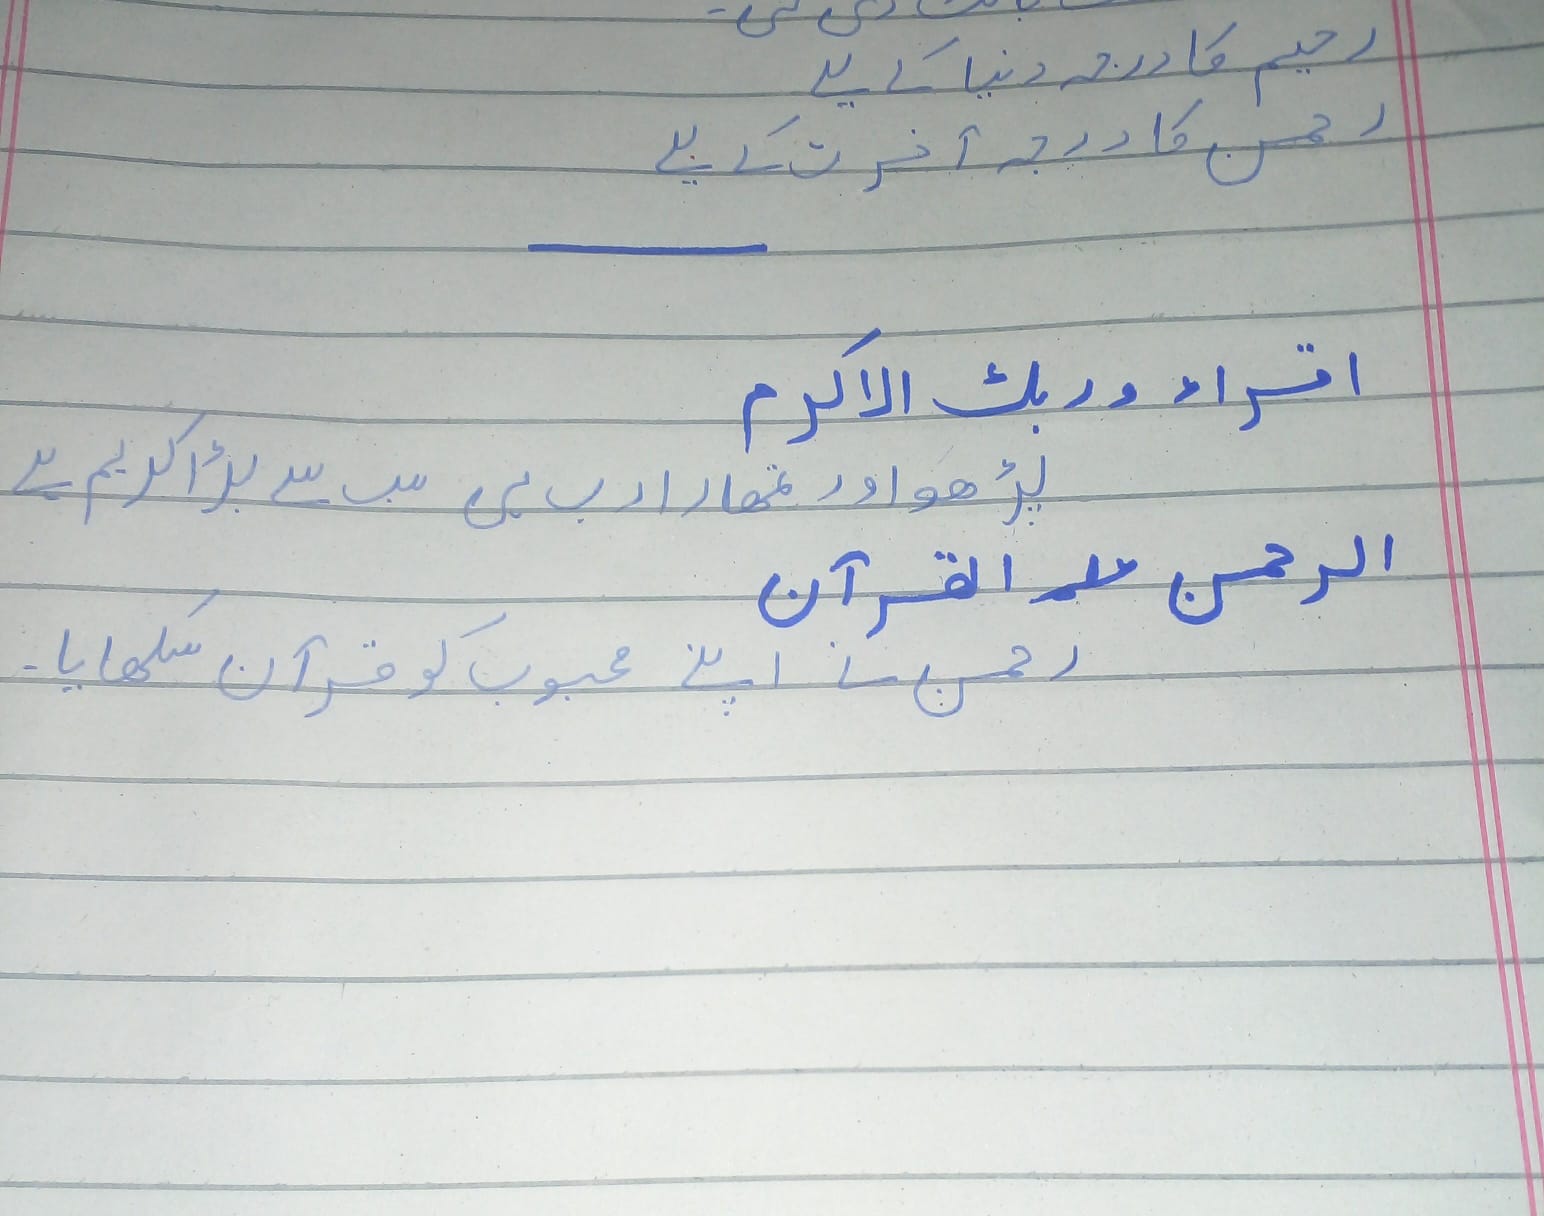 رحیم کا درجہ دنیا کے لیے
رحمن کا درجہ آخرت کے لیے
اقراء وربک الاکرم
پڑھو اور تمھارا رب ہی سب سے بڑا کریم ہے
الرحمن علم القرآن
رحمن نے اپنے محبوب کو قرآن سکھایا۔